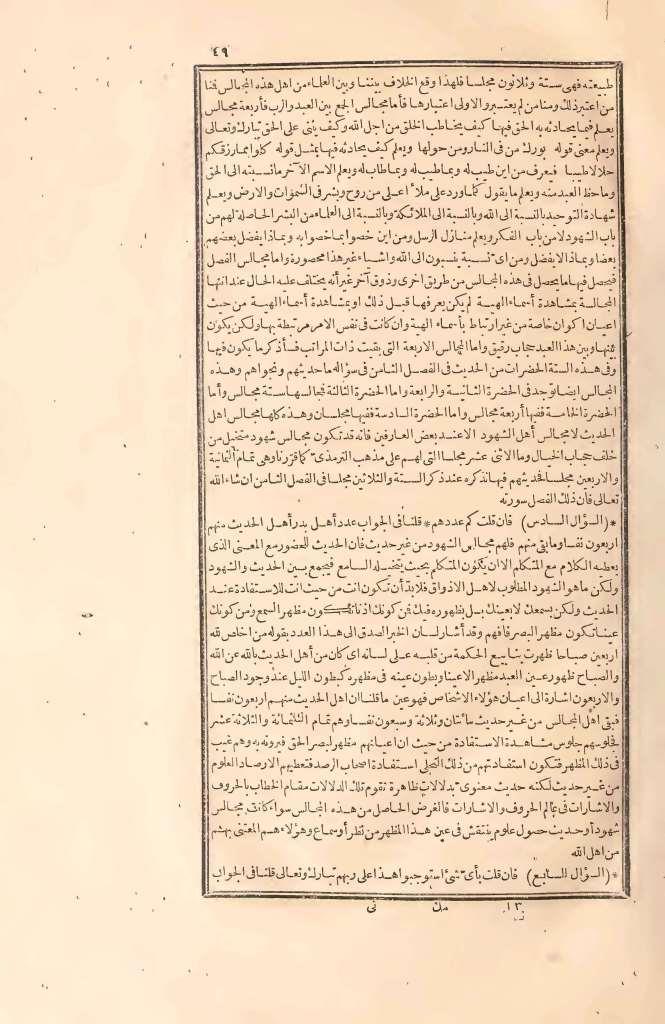 ٤٩
طبيعته فهى ستة وثلاثون مجلسا فلهذا وقع الخلاف بيننا وبين العلماء من أهل هذه المجالس فنا
من اعتبر ذلك ومنا من لم يعتبره والاولى اعتبارها فأما مجالس الجمع بين العبد والرب فأربعة مجالس
يعلم فيما يحادثه به الحق فيها كيف يخاطب الخلق من اجل الله وكيف يثنى على الحق تبارك وتعالى
ويعلم معنى قوله بورك من فى النار ومن حولها ويعلم كيف يحادثه فيها بمثل قوله كلوا مما رزقكم
حلالا طيبا فيعرف من اين طيب له وبما طيب له وبما طاب له ويعلم الاسم الآخر ما نسبته الى الحق
وما حظ العبد منه ويعلم ما يقول كما ورد على ملأ أعلى من روح وبشر فى السموات والارض ويعلم
شهادة التوحيد بالنسبة الى الله وبالنسبة الى الملائكة وبالنسبة الى العلماء من البشر الحاصلة لهم من
باب الشهود لا من باب الفكر ويعلم منازل الرسل ومن اين خصوا بما خصوا به وبماذا يفضل بعضهم
بعضا وبماذا لا يفضل ومن اى نسبة ينسبون الى الله واشياء غير هذا محصورة واما مجالس الفصل
فيحصل فيها ما يحصل فى هذه المجالس من طريق اخرى وذوق آخر غير أنه يختلف عليه الحال عند انتهاء
المجالسة بمشاهدة أسماء الهية لم يكن يعرفها قبل ذلك او بمشاهدة أسماء الهية من حيث
اعيان اكوان خاصة من غير ارتباط بأسماء الهية وان كانت فى نفس الامر مرتبطة بها ولكن يكون
بينها وبين هذا العبد حجاب رقيق واما المجالس الاربعة التى بقيت ذات المراتب فسأذكر ما يكون فيها
وفى هذه الستة الحضرات من الحديث فى الفصل الثامن فى سؤاله ما حديثهم ونجواهم وهذه
المجالس ايضا توجد فى الحضرة الثانية والرابعة واما الحضرة الثالثة فجالسها ستة مجالس وأما
الحضرة الخامسة ففيها أربعة مجالس واما الحضرة السادسة ففيها مجلسان وهذه كلها مجالس اهل
الحديث لا مجالس أهل الشهود الا عند بعض العارفين فانه قد تكون مجالس شهود متخيل من
خلف حجاب الخيال وما الاثنى عشر مجلسا التى لهم على مذهب الترمذى كما قررناه هى تمام الثمانية
والاربعين مجلسا فحديثهم فيها نذكره عند ذكر الستة والثلاثين مجلسا فى الفصل الثامن ان شاء الله
تعالى فان ذلك الفصل سورته
*(السؤال السادس) فان قلت كم عددهم* قلنا فى الجواب عدد أهل بدر أهل الحديث منهم
اربعون نفسا وما بقى منهم فلهم مجالس الشهود من غير حديث فان الحديث للحضور مع المعنى الذى
يعطيه الكلام مع المتكلم الا ان يكون المتكلم بحيث يتخيله السامع فيجمع بين الحديث والشهود
ولكن ما هو الشهود المطلوب لاهل الاذواق فلا بد أن تكون انت من حيث انت للاستفادة عند
الحديث ولكن بسمعك لا بعينك بل بظهوره فيك فن كونك اذنا تكون مظهر السمع ومن كونك
عينا تكون مظهر البصر فافهم وقد أشار لسان الخبر الصدق الى هذا العدد بقوله من اخلص لله
اربعين صباحا ظهرت ينابيع الحكمة من قلبه على لسانه اى كان من أهل الحديث بالله عن الله
والصباح ظهور عين العبد مظهر الاعينا وبطون عينه فى مظهره كبطون الليل عند وجود الصباح
والاربعون اشارة الى اعيان هؤلاء الاشخاص فهو عين ما قلنا ان اهل الحديث منهم اربعون نفسا
فبقى أهل المجالس من غير حديث مائتان وثلاثة وسبعون نفسا وهم تمام الثلثمائة والثلاثة عشر
فجلوسهم جلوس مشاهدة للاستفادة من حيث ان اعيانهم مظهر لبصر الحق فيرونه به وهم غيب
فى ذلك المظهر فتكون استفادتهم من ذلك التجلى استفادة اصحاب الرصد فتعطيهم الارصاد العلوم
من غير حديث لكنه حديث معنوى بدلالات ظاهرة تقوم تلك الدلالات مقام الخطاب بالحروف
والاشارات فى عالم الحروف والاشارات فالغرض الحاصل من هذه المجالس سواء كانت مجالس
شهود أو حديث حصول علوم ينتقش فى عين هذا المظهر من نظر أو سماع وهؤلاء هم المعتنى بهم
من اهل الله
*(السؤال السابع) فان قلت بأى شئ استوجبوا هذا على ربهم تبارك وتعالى قلنا فى الجواب
١٣ مك نى